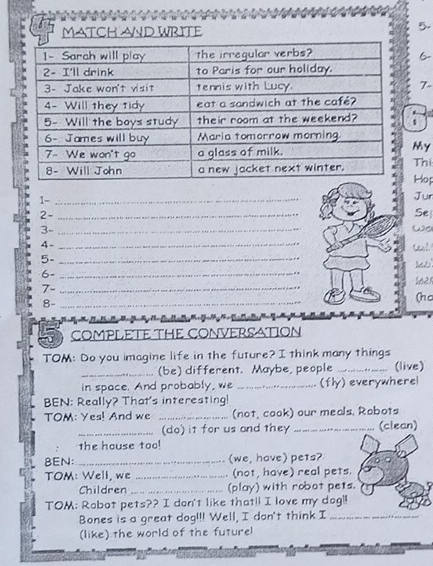 4 MATCH AND WRITE
1- Sarah will play the irregular verbs?
2- I'll drink to Paris for our holiday.
3- Jake won't visit tennis with Lucy.
4- Will they tidy eat a sandwich at the café?
5- Will the boys study their room at the weekend?
6- James will buy Maria tomorrow morning.
7- We won't go a glass of milk.
8- Will John a new jacket next winter.
1-
2-
3-
4-
5-
6-
7-
8-
5 COMPLETE THE CONVERSATION
TOM: Do you imagine life in the future? I think many things
(be) different. Maybe, people (live)
in space. And probably, we (fly) everywhere!
BEN: Really? That's interesting!
TOM: Yes! And we (not, cook) our meals. Robots
(do) it for us and they (clean)
the house too!
BEN: (we, have) pets?
TOM: Well, we (not, have) real pets.
Children (play) with robot pets.
TOM: Robot pets?? I don't like that!! I love my dog!!
Bones is a great dog!!! Well, I don't think I
(like) the world of the future!
5-
6-
7-
6
My
Thi
Hop
Jur
Se
(ha